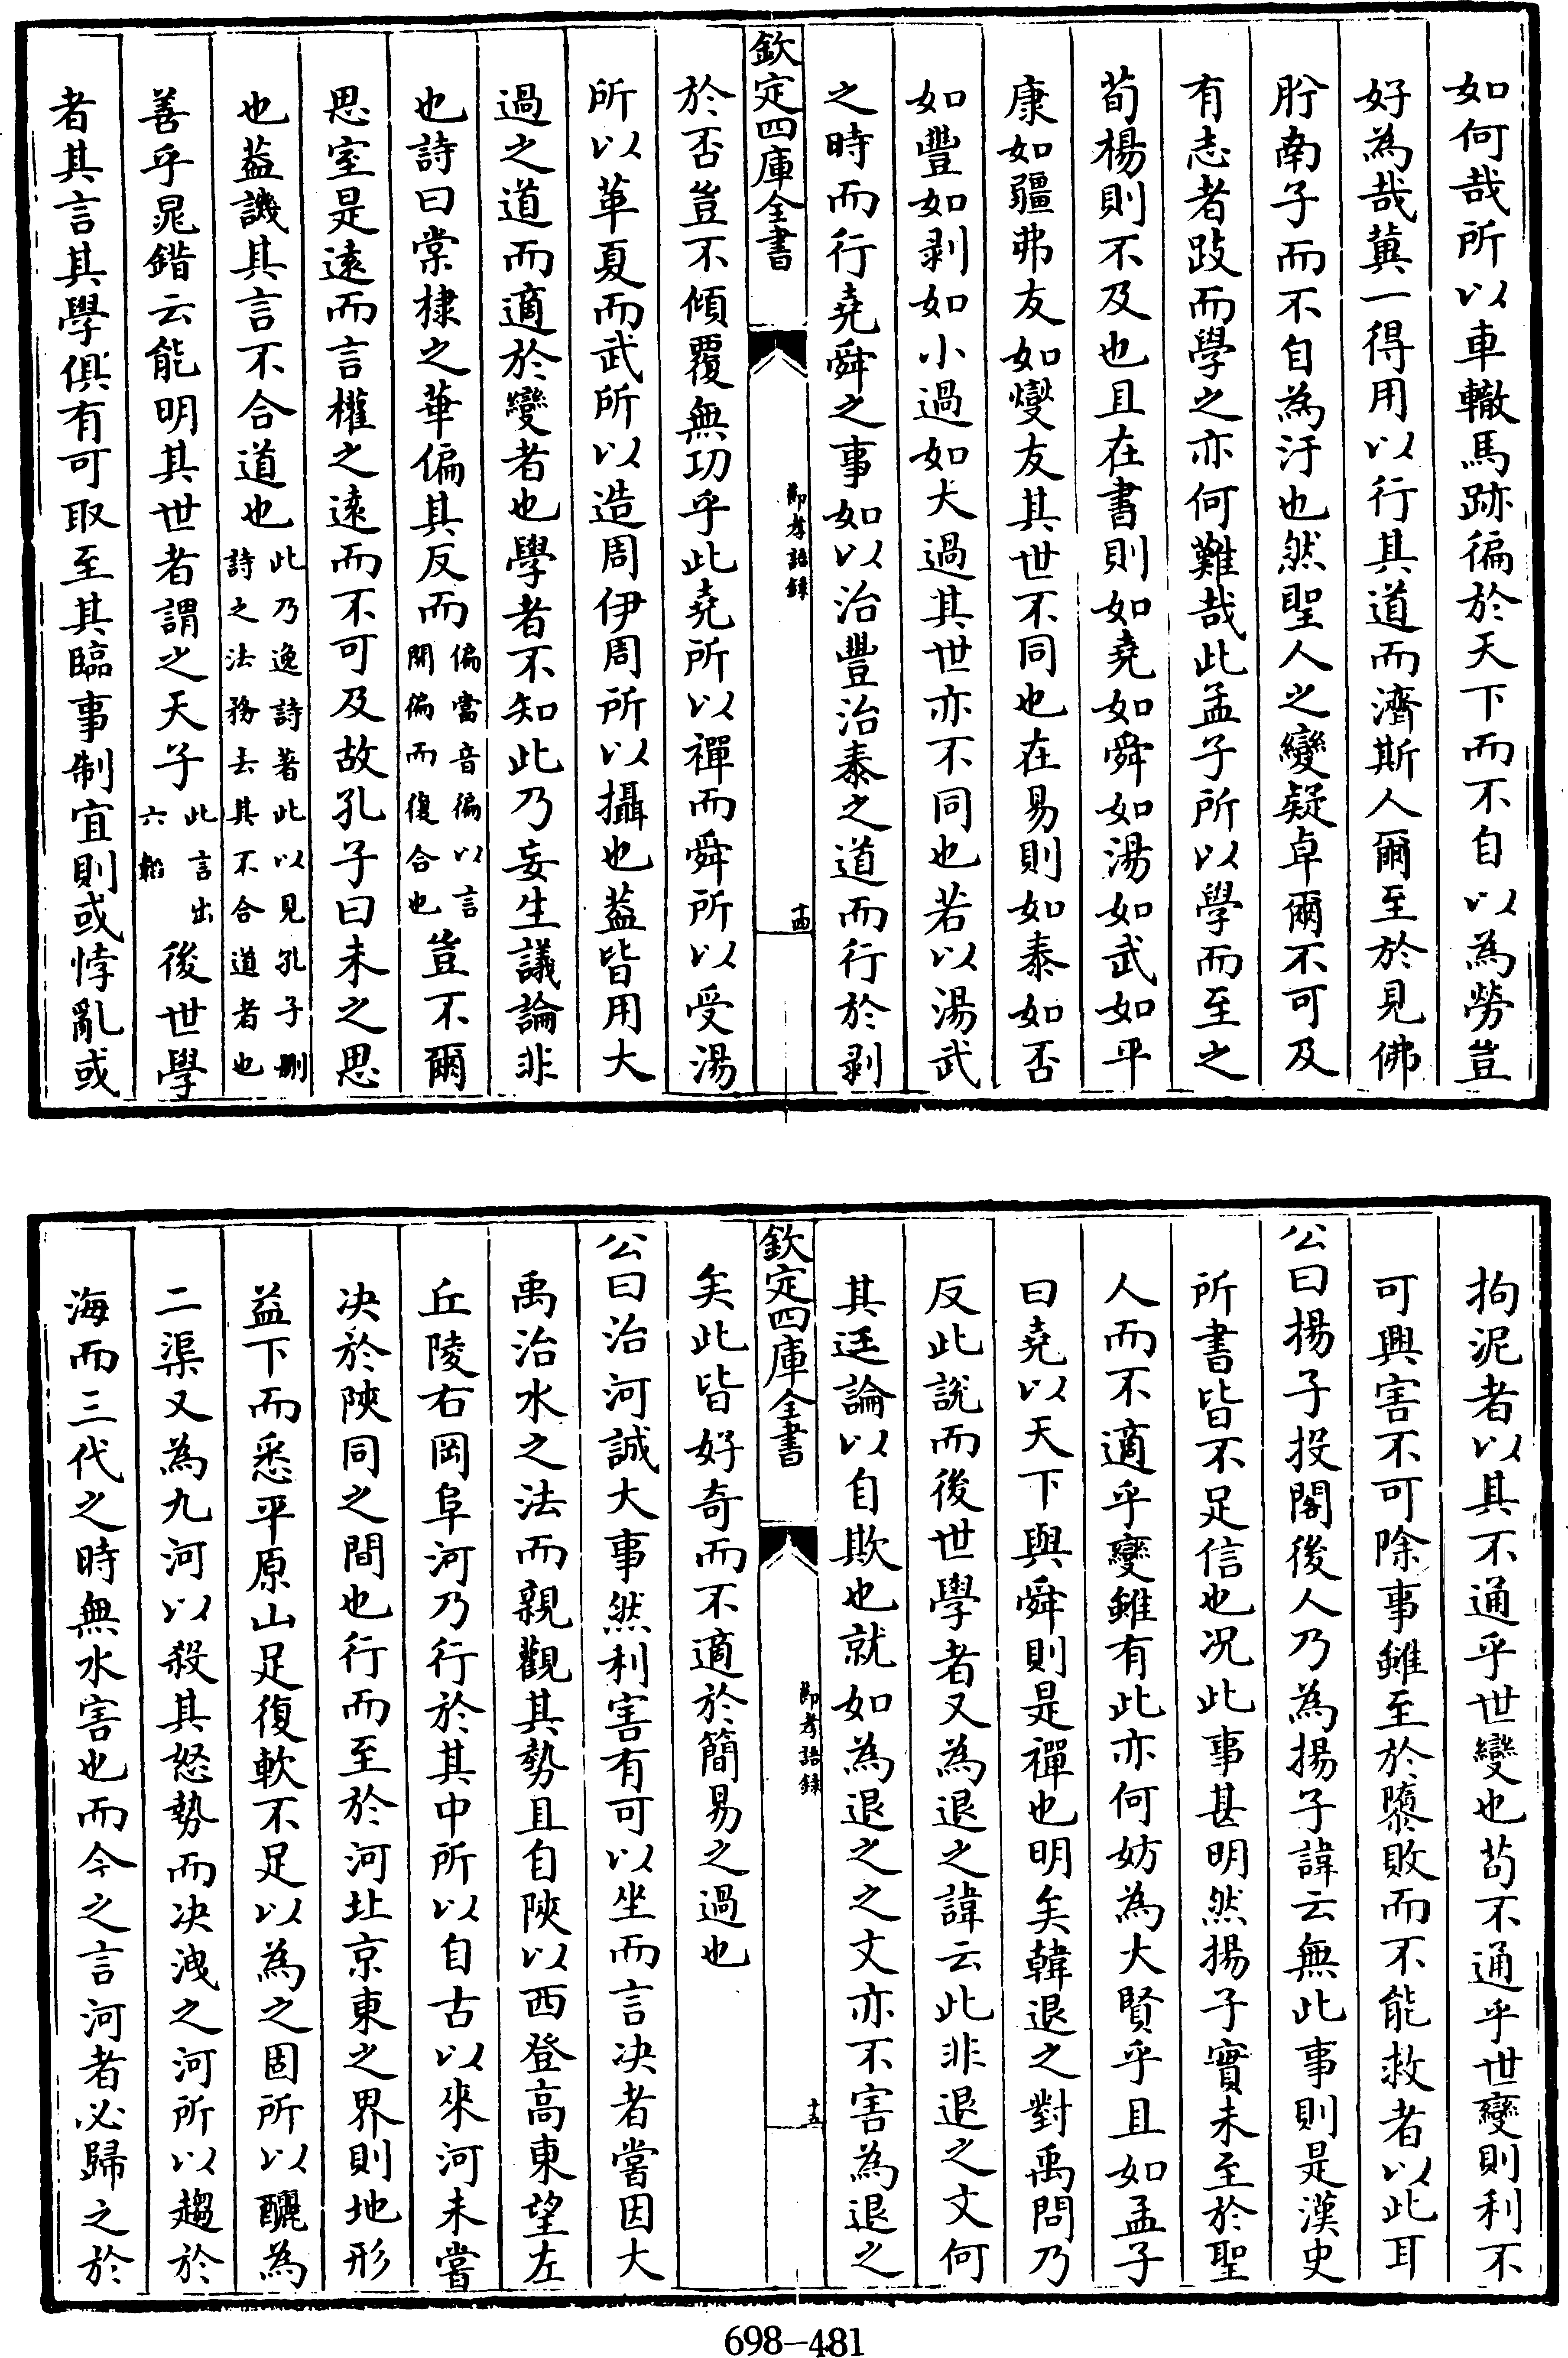 如何哉所以車轍馬跡徧於天下而不自以為勞豈
好為哉冀一得用以行其道而濟斯人爾至於見佛
肸南子而不自為汙也然聖人之變疑卓爾不可及
有志者跂而學之亦何難哉此孟子所以學而至之
荀楊則不及也且在書則如堯如舜如湯如武如平
康如疆弗友如燮友其世不同也在易則如泰如否
如豐如剥如小過如大過其世亦不同也若以湯武
之時而行堯舜之事如以治豐治泰之道而行於剥
欽定四庫全書
節孝語録
十四
於否豈不傾覆無功乎此堯所以禪而舜所以受湯
所以革夏而武所以造周伊周所以攝也葢皆用大
過之道而適於變者也學者不知此乃妄生議論非
也詩曰棠棣之華偏其反而偏當音徧以言開偏而復合也豈不爾
思室是遠而言權之遠而不可及故孔子曰未之思
也葢譏其言不合道也此乃逸詩著此以見孔子刪詩之法務去其不合道者也
善乎晁錯云能明其世者謂之天子此言出六韜後世學
者其言其學俱有可取至其臨事制宜則或悖亂或
拘泥者以其不通乎世變也苟不通乎世變則利不
可興害不可除事雖至於隳敗而不能救者以此耳
公曰揚子投閣後人乃為揚子諱云無此事則是漢史
所書皆不足信也况此事甚明然揚子實未至於聖
人而不適乎變雖有此亦何妨為大賢乎且如孟子
曰堯以天下與舜則是禪也明矣韓退之對禹問乃
反此説而後世學者又為退之諱云此非退之文何
其迂論以自欺也就如為退之之文亦不害為退之
欽定四庫全書
節孝語録
十五
矣此皆好奇而不適於簡易之過也
公曰治河誠大事然利害有可以坐而言决者當因大
禹治水之法而親觀其勢且自陜以西登高東望左
丘陵右岡阜河乃行於其中所以自古以來河未嘗
决於陜同之間也行而至於河北京東之界則地形
益下而悉平原山足復軟不足以為之固所以釃為
二渠又為九河以殺其怒勢而决洩之河所以趨於
海而三代之時無水害也而今之言河者必歸之於
698-481